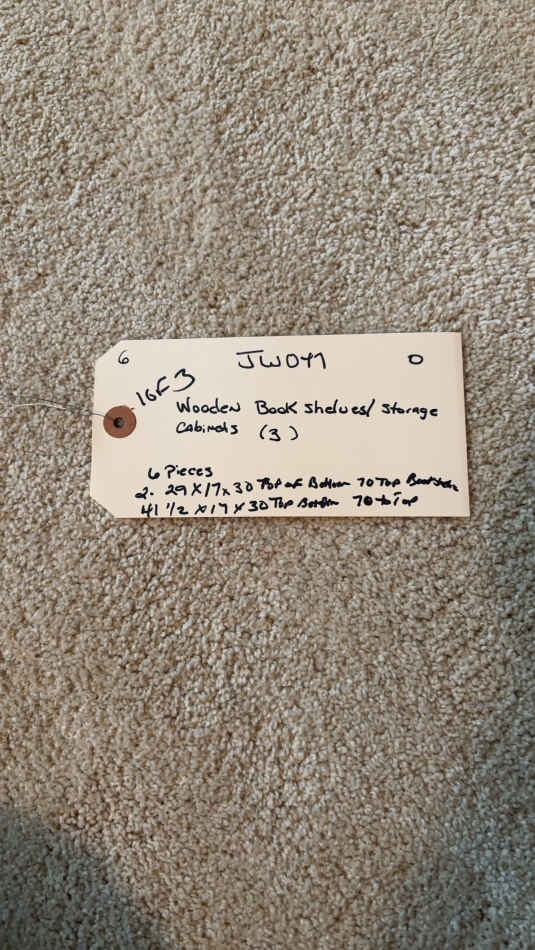 6 JW041 0
1 of 3
Wooden Book Shelves/ Storage
Cabinets (3)
6 Pieces
2. 29 X 17 x 30 Top of Bottom 70 Top
41 1/2 x 17 x 30 Top Bottom 70 to Top